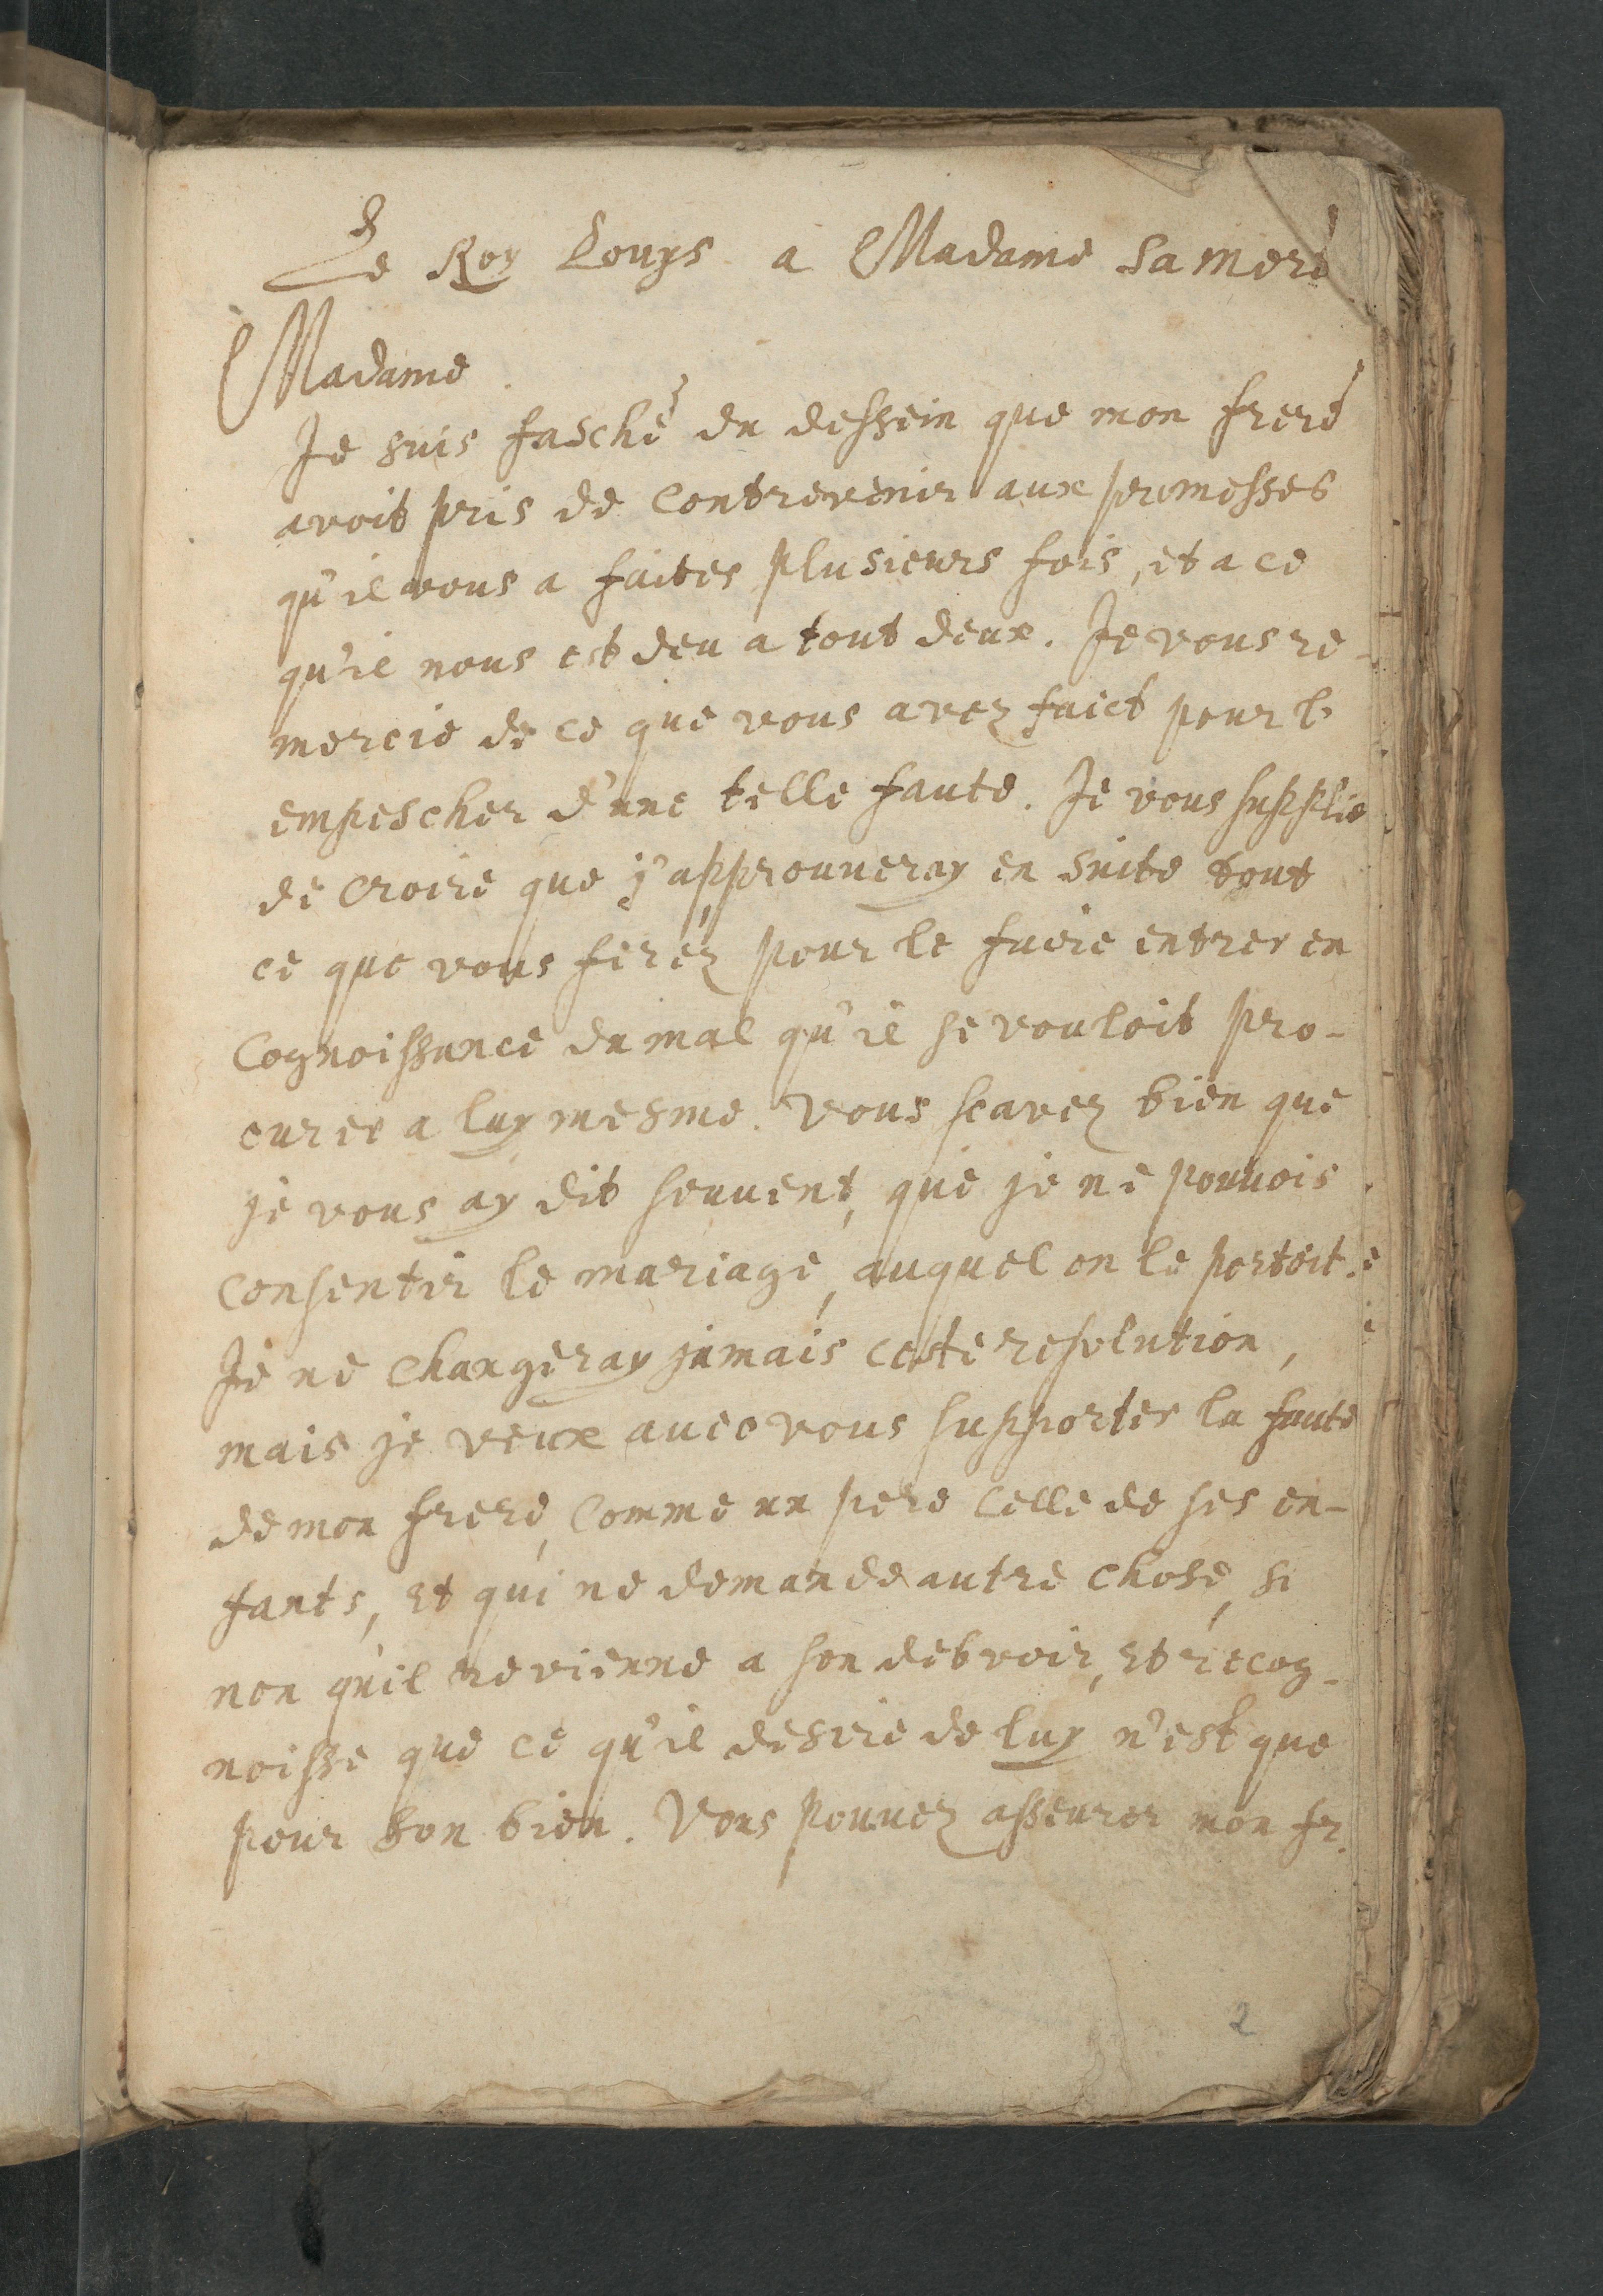 Le Roy Louys a Madame sa mere
Madame
Je suis fasché du dessein que mon frere
avoit pris de Contrevenir aux promesses
qu'il vous a faites plusieurs fois, et a ce
qu'il nous est deu a tout deux. Je vous re-
mercie de ce que vous avez faict pour l'
empescher d'une telle faute. Je vous supplie
de croire que j'approuveray en suite tout
ce que vous ferez pour le faire entrer en
Cognoissance du mal qu'il se vouloit pro-
curer a luy mesme. Vous scavez bien que
je vous ay dit souvent, que je ne pouvois
Consentir le mariage, auquel on le portoit.
Je ne Changeray jamais ceste resolution,
mais je veux avec vous supporter la faute
de mon frere, Comme un pere Celle de ses en-
fants, Et qui ne demande autre chose, si
non qu'il revienne a son debvoir, Et recog-
noisse que ce qu'il desire de luy n'est que
pour son bien. Vous pouvez asseurer mon fr.
2